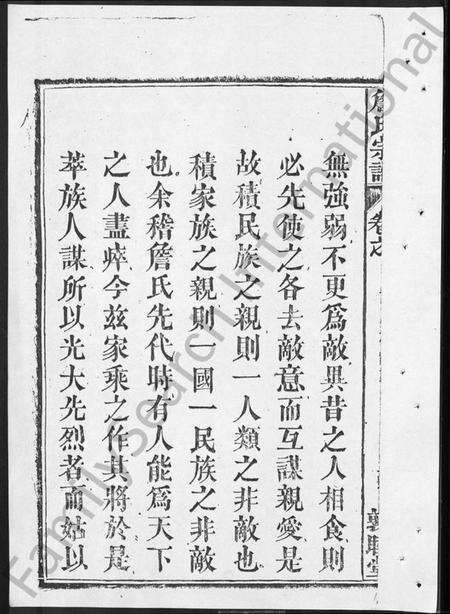 詹氏宗譜 卷之
無強弱不更為敵異昔之人相食則
必先使之各去敵意而互謀親愛是
故積民族之親則一人類之非敵也
積家族之親則一國一民族之非敵
也余稽詹氏先代時有人能為天下
之人盡瘁今玆家乘之作其將於是
萃族人謀所以光大先烈者而姑以
FamilySearch International